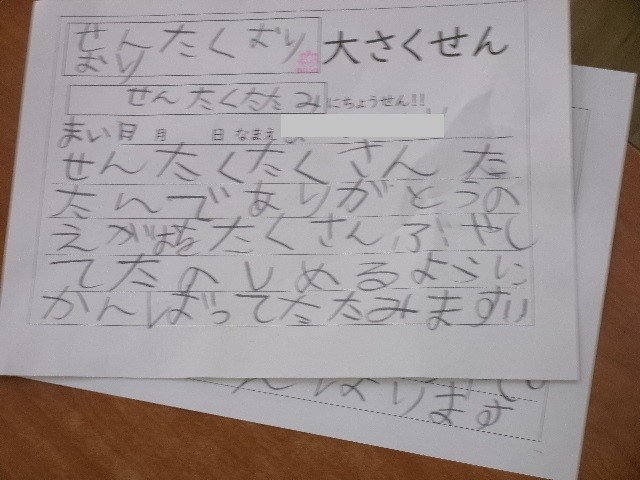 せんたくおり 大さくせん
おり
せんたくたたみにちょうせん!!
まい日 月 日 なまえ
せんたくたくさんた
たんでありがとうの
えがおをたくさんふやし
てたのしめるように
がんばってたたみます!!
んばります